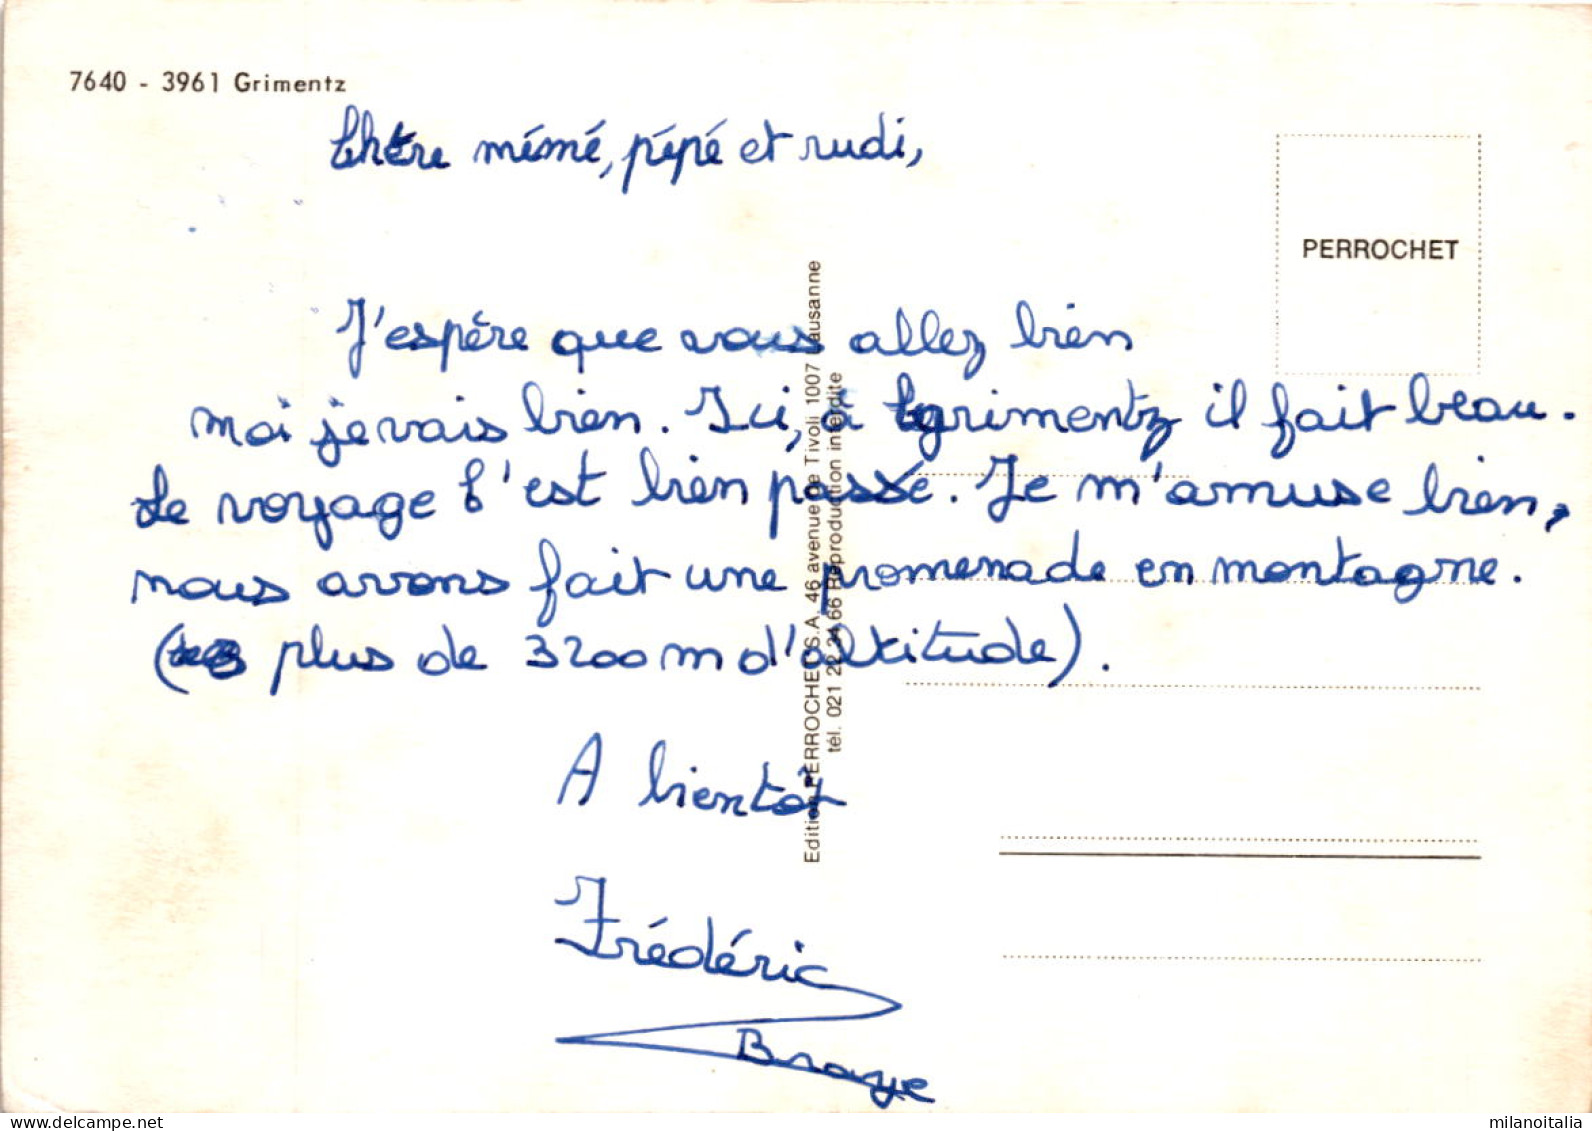 7640 - 3961 Grimentz
Chère mémé, pépé et rudi,
PERROCHET
J'espère que vous allez bien
moi je vais bien. Ici, à grimentz il fait beau.
Le voyage c'est bien passé. Je m'amuse bien,
nous avons fait une promenade en montagne.
( plus de 3200 m d'altitude).
A bientôt
Frédéric
Braye
Edition PERROCHET S.A. 46 avenue de Tivoli 1007 Lausanne
tél. 021 22 34 66 Reproduction interdite
milanoitalia